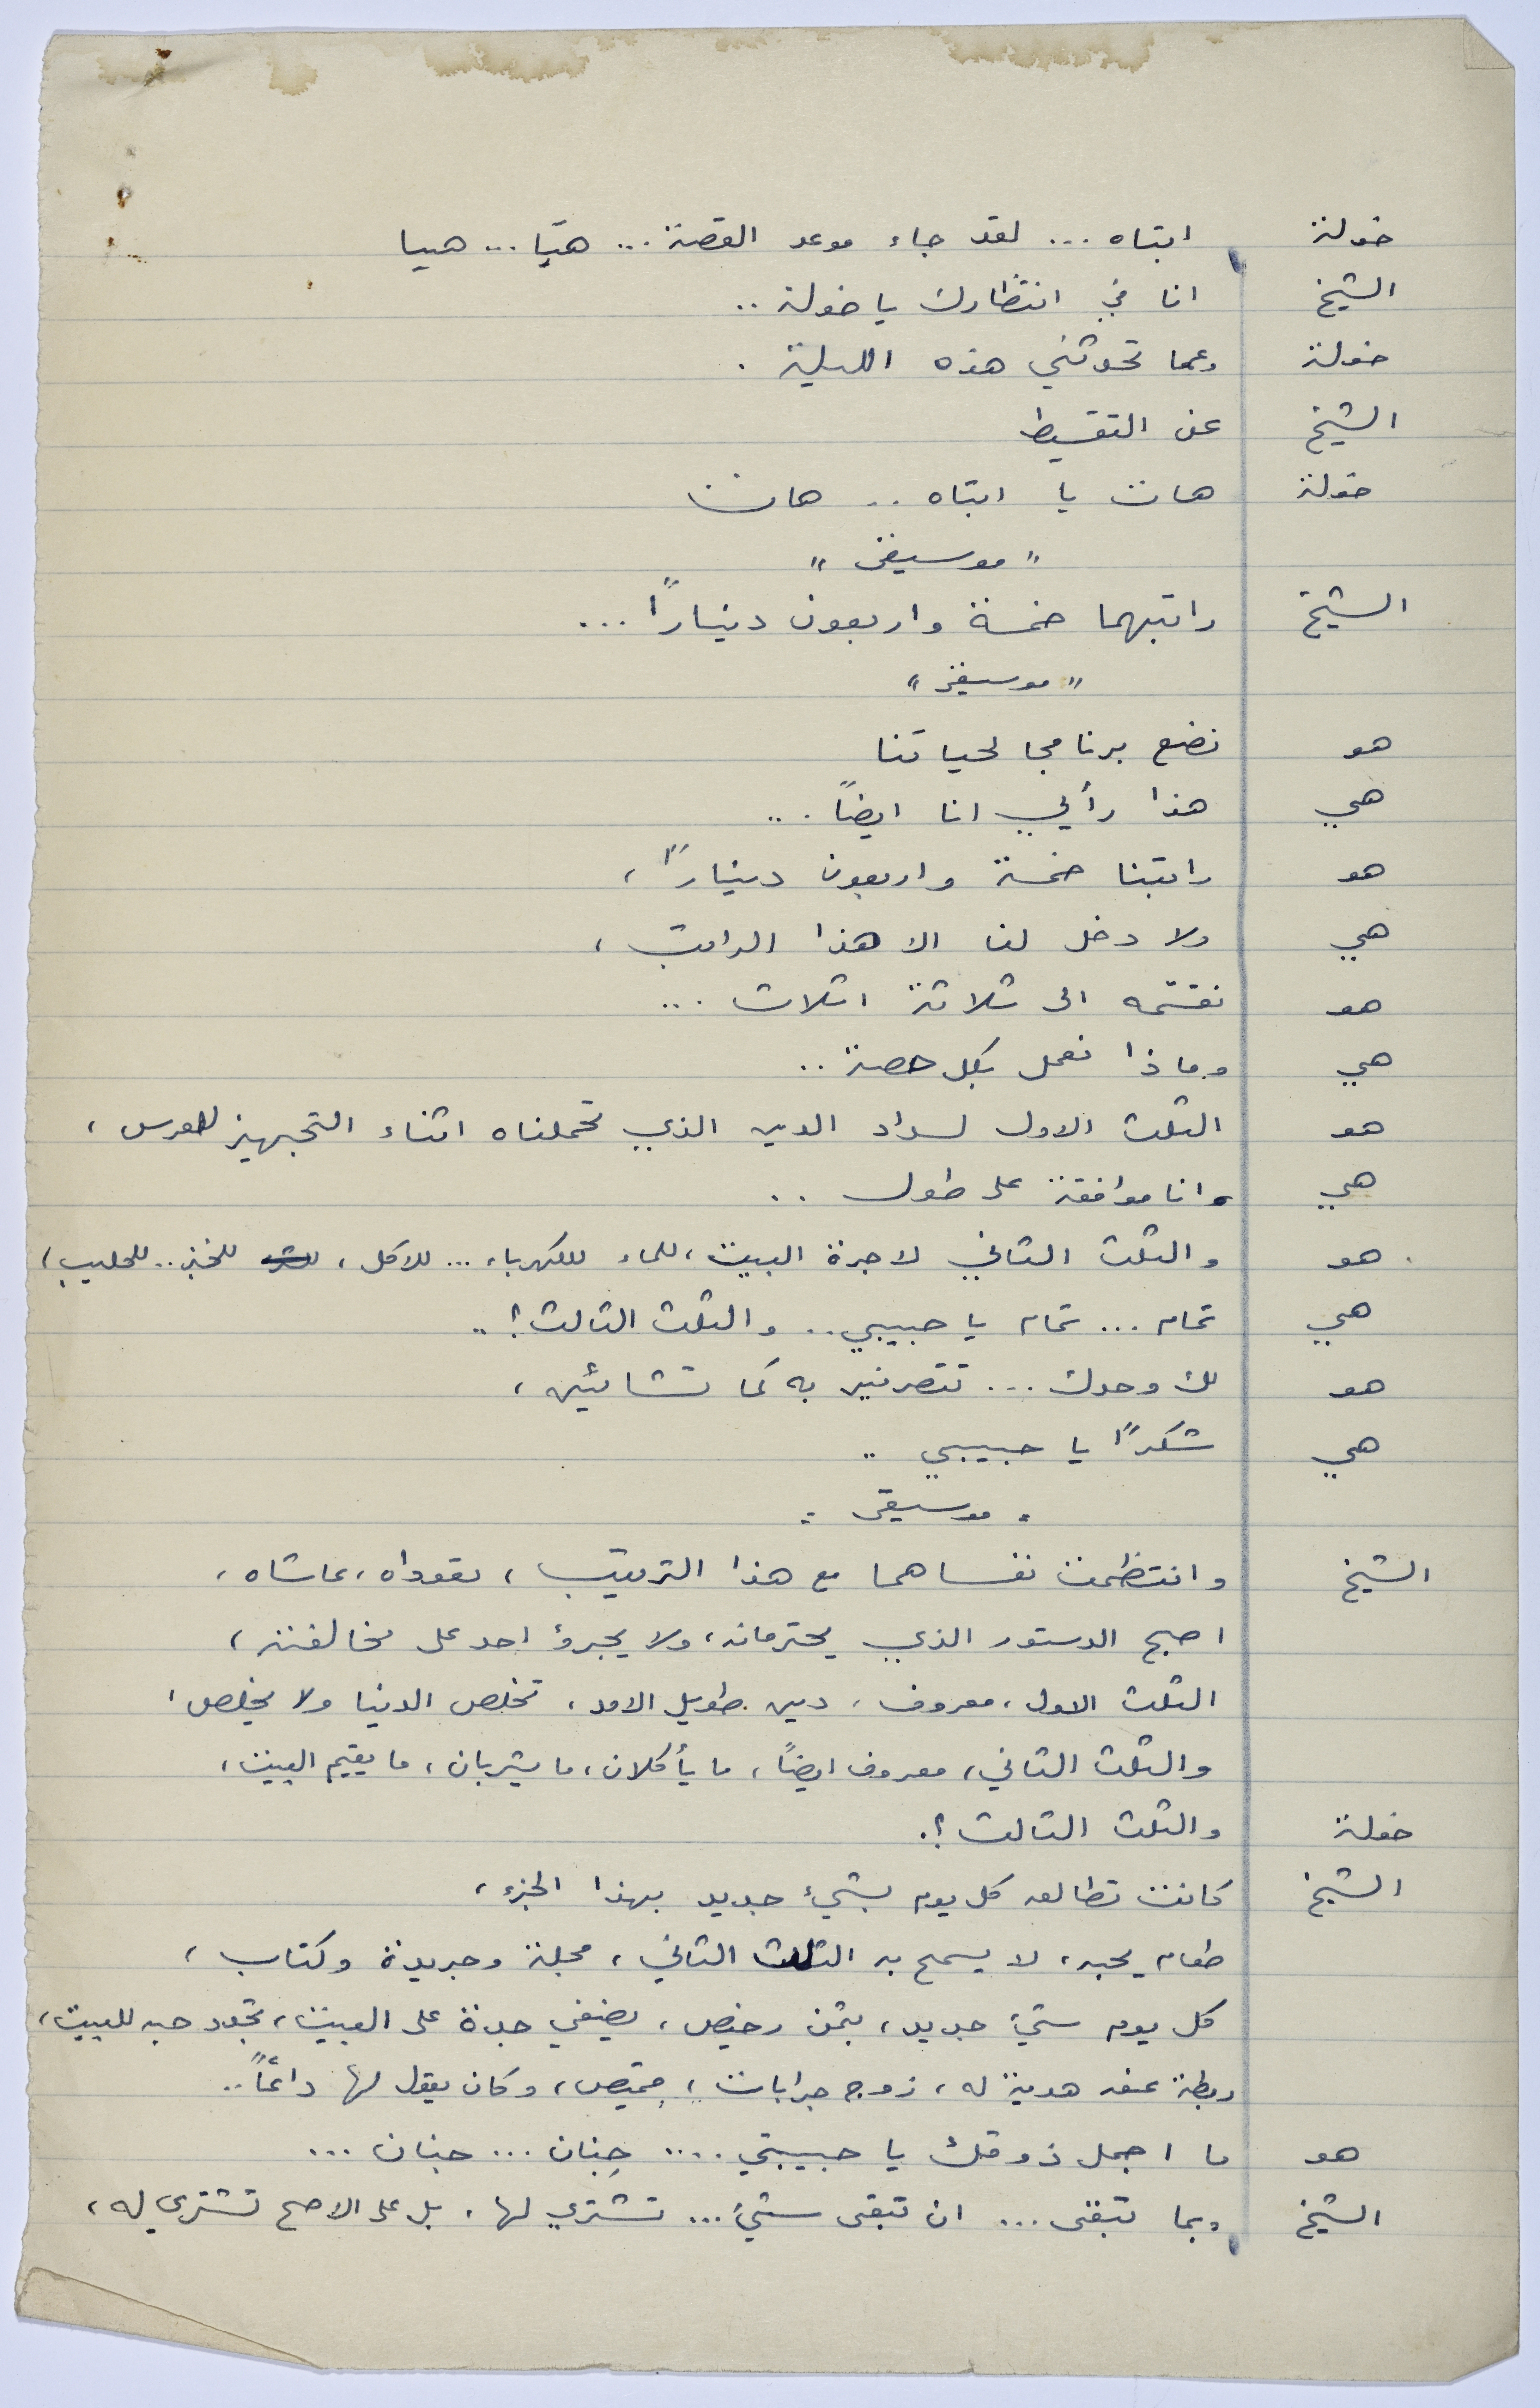 خولة ابتاه ... لقد جاء موعد القصة ... هيّا ... هيا
الشيخ انا في انتظارك يا خولة ..
خولة وعما تحدثني هذه الليلة .
الشيخ عن التقسيط
خولة هات يا ابتاه .. هات
" موسيقى "
الشيخ راتبهما خمسة واربعون ديناراً ...
" موسيقى "
هو نضع برنامجا لحياتنا
هي هذا رأيي انا ايضاً ...
هو راتبنا خمسة واربعون ديناراً ،
هي ولا دخل لنا الا هذا الراتب ،
هو نقسّمه الى ثلاثة اثلاث ...
هي وماذا نعمل بكل حصة ..
هو الثلث الاول لسداد الدين الذي تحملناه اثناء التجهيز للعرس ،
هي وانا موافقة على طول ..
هو والثلث الثاني لاجرة البيت ، للماء للكهرباء ... للاكل ، للخبز .. للحليب ،
هي تمام ... تمام يا حبيبي .. والثلث الثالث ؟ ..
هو لك وحدك ... تتصرفين به كما تشائين ،
هي شكراً يا حبيبي ..
" موسيقى "
الشيخ وانتظمت نفساهما مع هذا الترتيب ، تعوداه ، عاشاه ،
اصبح الدستور الذي يحترمانه ، ولا يجرؤ احد على مخالفته ،
الثلث الاول ، معروف ، دين طويل الامد ، تخلص الدنيا ولا يخلص ،
والثلث الثاني ، معروف ايضاً ، ما يأكلان ، ما يشربان ، ما يقيم البيت ،
خولة والثلث الثالث ؟ .
الشيخ كانت تطالعه كل يوم بشيء جديد بهذا الجزء ،
طعام يحبه ، لا يسمح به الثلث الثاني ، مجلة وجريدة وكتاب ،
كل يوم شيء جديد ، بثمن رخيص ، يضفي جدة على البيت ، تجدد حبه للبيت ،
ربطة عنق هدية له ، زوج جرابات ، قميص ، وكان يقول لها دائماً ..
هو ما اجمل ذوقك يا حبيبتي .... جنان ... جنان ...
الشيخ وبما تبقى ... ان تبقى شيء ... تشتري لها ، بل على الاصح تشتري له ،